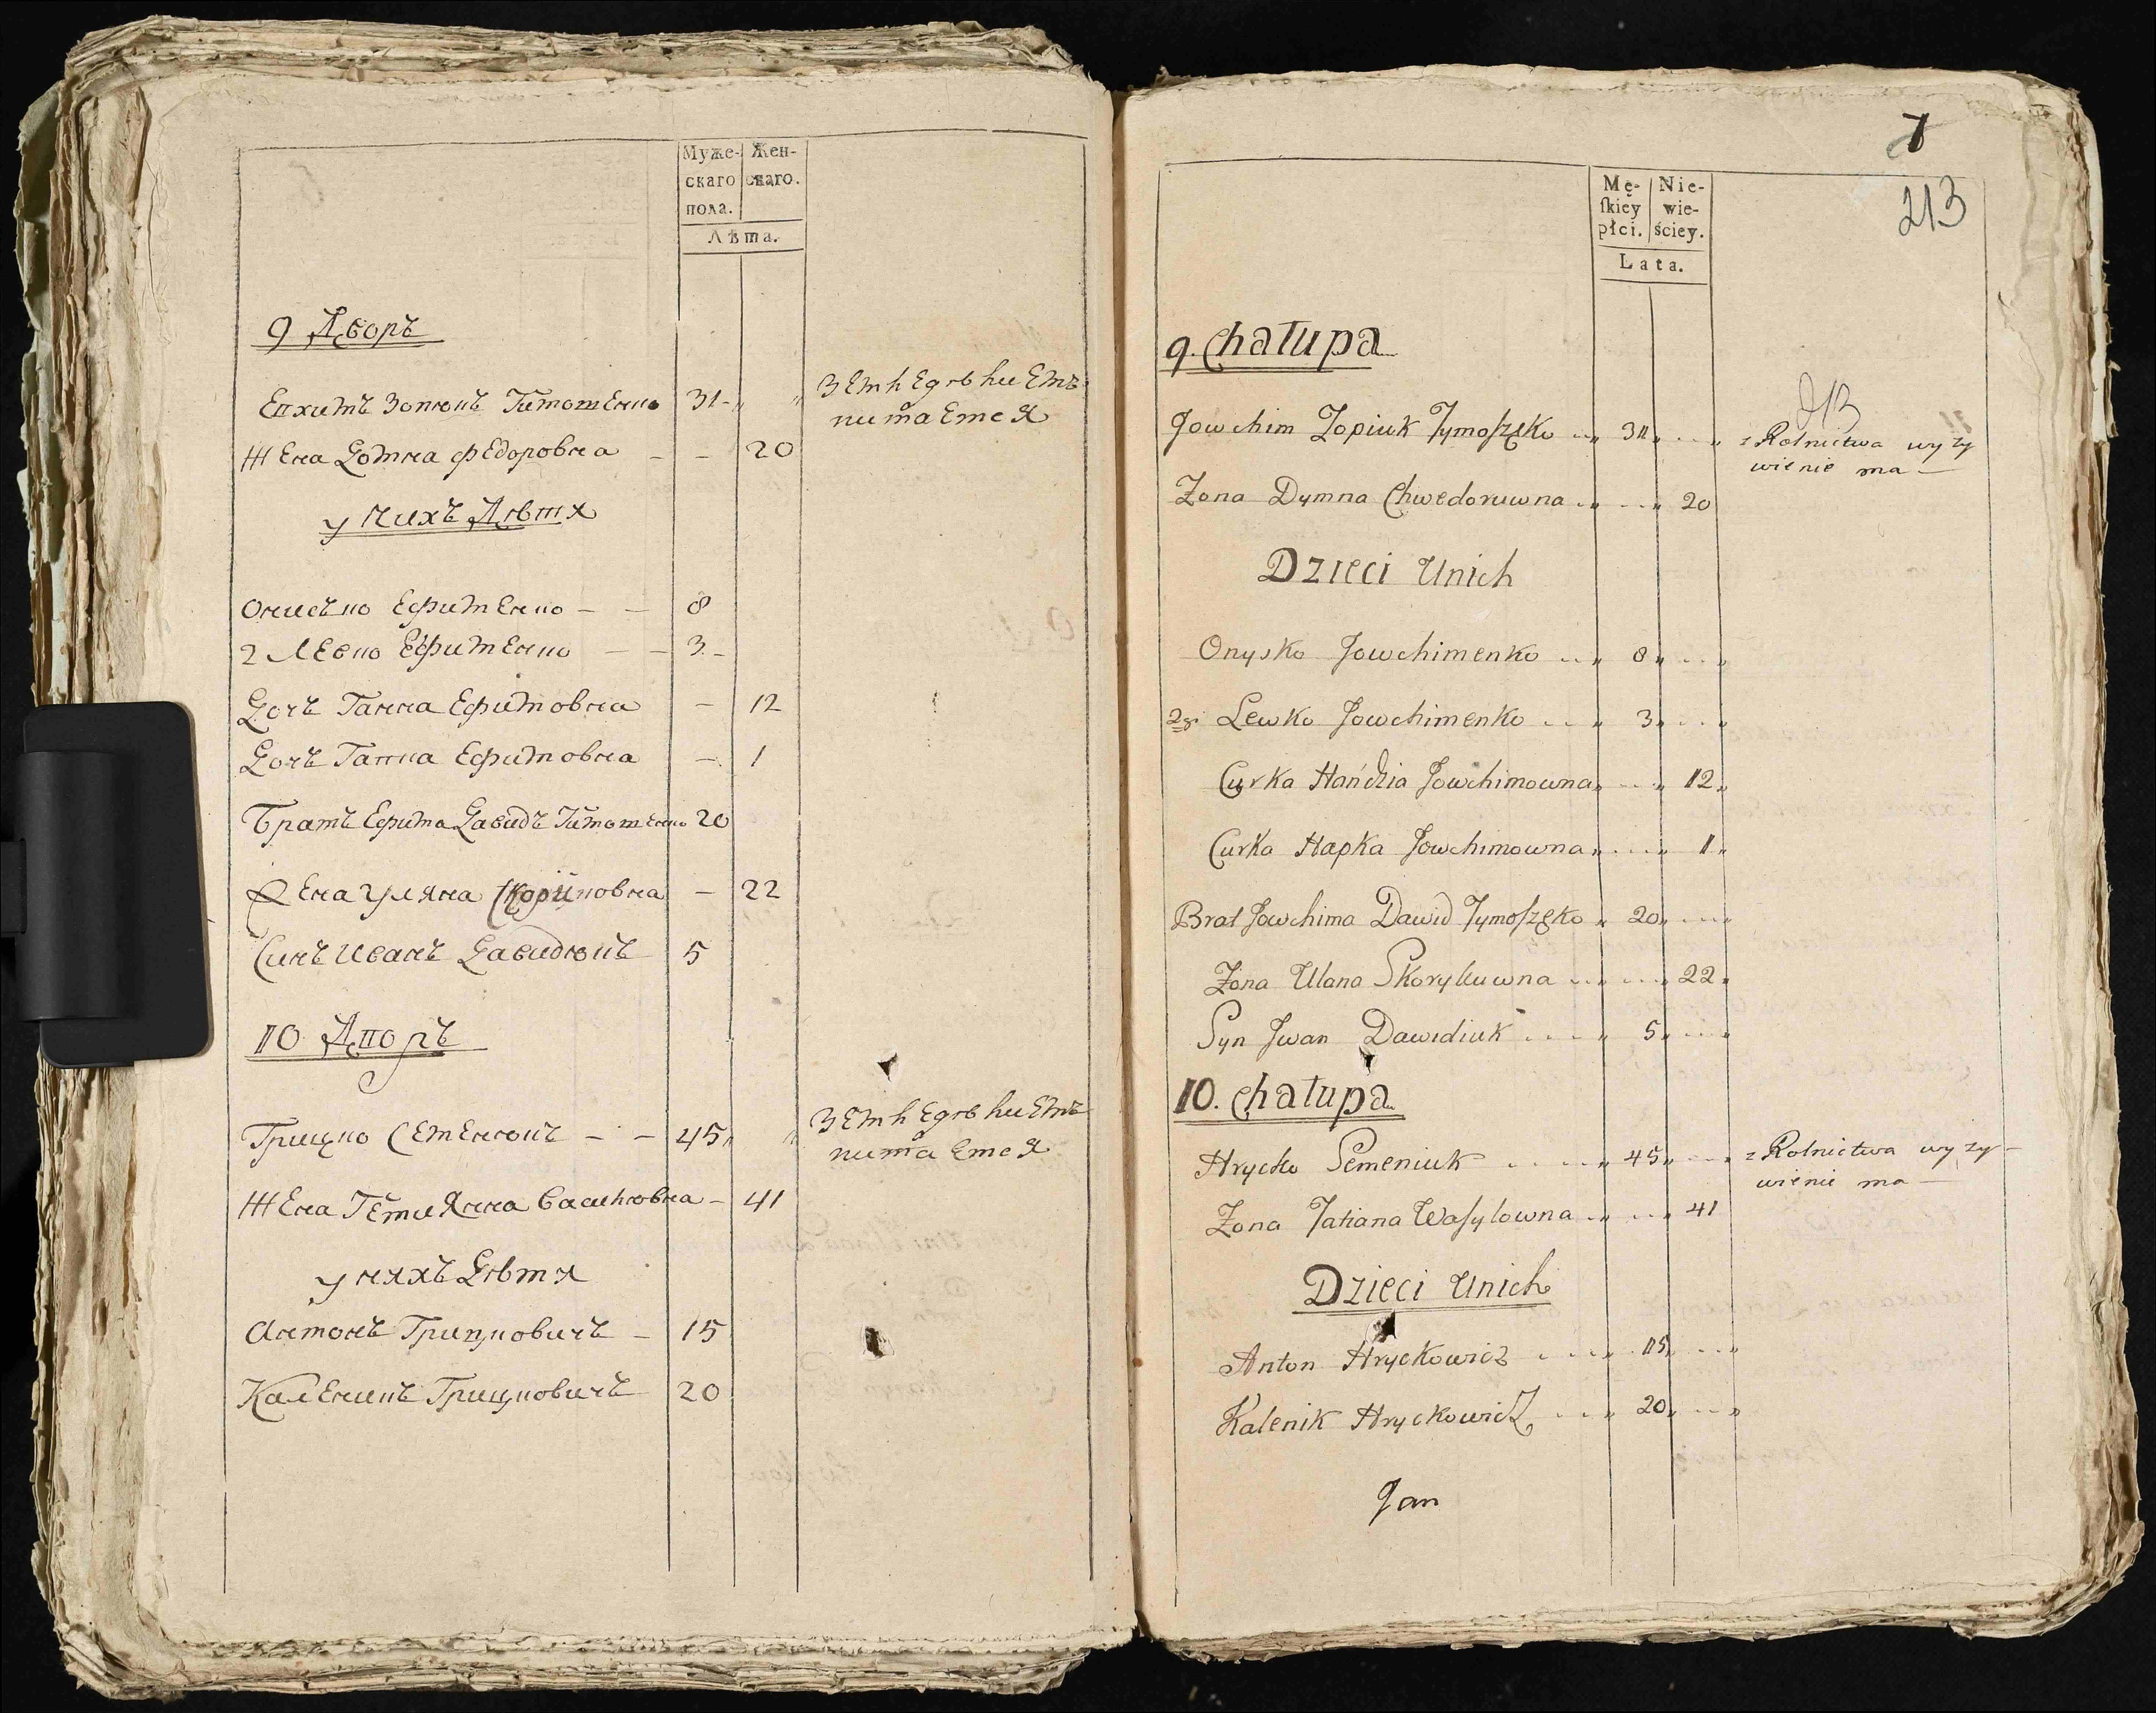 Муже-
скаго
пола.
Жен-
скаго.
Лѣта.
9 Дворъ
Епхимъ Зопюкъ Тимошенко 31
землѣделиемъ
питаемся
Жена Домна Федоровна - - 20
у нихъ Дѣтя
Онисько Ефименко - - 8
2 Левко Ефименко - - 3 -
Дочъ Ганна Ефимовна - 12
Дочъ Гапка Ефимовна - 1
Братъ Ефима Давидъ Тимошенко 20
Жена Уляна Скориковна - 22
Синъ Иванъ Давидюкъ 5
10 Дворъ
Грицко Семенюкъ - - 45
землѣделиемъ
питаемся
Жена Тетиянна Василювна - 41
у няхъ Дѣтя
Антонъ Грицковичъ - 15
Каленикъ Грицковичъ 20
7
213
Mę-
skiey
płci.
Nie-
wie-
ściey.
Lata.
9. Chałupa
213
Jowchim Zopiuk Tymoszęko 31
z Rolnictwa wyży
wienie ma
Zona Dymna Chwedoruwna 20
Dzieci Unich
Onysko Jowchimenko 8
2gi Lewko Jowchimenko 3
Curka Hańdzia Jowchimowna 12
Curka Hapka Jowchimowna 1
Brat Jowchima Dawid Tymoszęko 20
Zona Ulana Skorykuwna 22
Syn Jwan Dawidiuk 5
10. Chałupa
Hrycko Semeniuk 45
z Rolnictwa wyży-
wienie ma
Zona Tatiana Wasylowna 41
Dzieci Unich
Anton Hryckowicz 15
Kalenik Hryckowicz 20
Jan